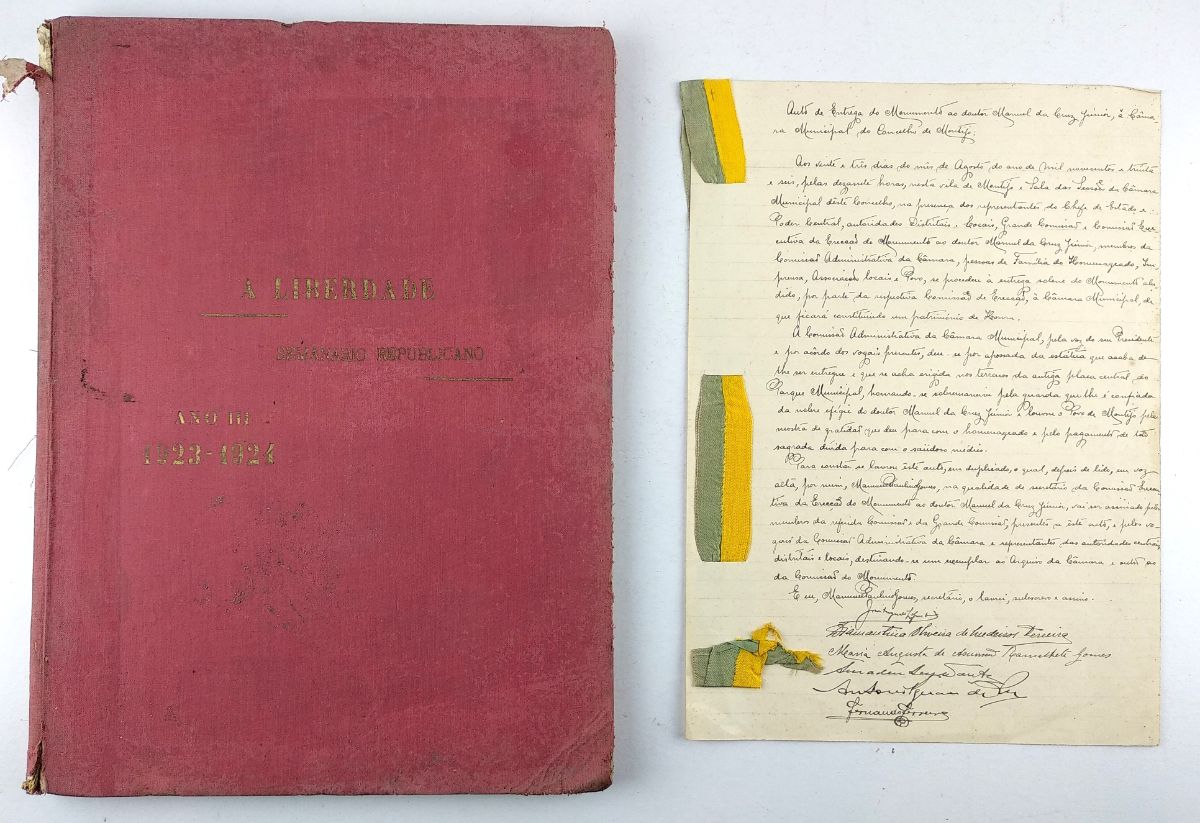 A LIBERDADE
SEMANARIO REPUBLICANO
ANO III
1923-1924
Auto de Entrega do Monumento ao doutor Manuel da Cruz Júnior, à Câma-
ra Municipal do Concelho de Montijo.
Aos vinte e três dias do mês de Agosto do ano de mil novecentos e trinta
e seis, pelas dezassete horas, nesta vila de Montijo e Sala das Sessões da Câmara
Municipal dêste Concelho, na presença dos representantes do Chefe de Estado e
Poder Central, autoridades Distritais e Locais, Grande Comissão e Comissão Exe-
cutiva da Erecção do Monumento ao doutor Manuel da Cruz Júnior, membros da
Comissão Administrativa da Câmara, pessoas de Família do Homenageado, Im-
prensa, Associações locais e Povo, se procedeu à entrega solene do Monumento alu-
dido, por parte da respectiva Comissão de Erecção, à Câmara Municipal, de
que ficará constituindo um património de Honra.
A Comissão Administrativa da Câmara Municipal, pela voz do seu Presidente
e por acôrdo dos vogais presentes, deu-se por apossada da estátua que acaba de
lhe ser entregue e que se acha erigida nos terraços da antiga placa central do
Parque Municipal, honrando-se sobremaneira pela guarda que lhe é confiada
da nobre efígie do doutor Manuel da Cruz Júnior e louva o Povo de Montijo pela
mostra de gratidão que deu para com o homenageado e pelo pagamento de tão
sagrada dívida para com o saüdoso médico.
Para constar se lavrou êste auto, em duplicado, o qual, depois de lido, em voz
alta, por mim, Manuel Paulino Gomes, na qualidade de secretário da Comissão Execu-
tiva da Erecção do Monumento ao doutor Manuel da Cruz Júnior, vai ser assinado pelos
membros da referida Comissão e da Grande Comissão, presentes a êste acto, e pelos vo-
gais da Comissão Administrativa da Câmara e representantes das autoridades centrais,
distritais e locais, destinando-se um exemplar ao Arquivo da Câmara e outro ao
da Comissão do Monumento.
E eu, Manuel Paulino Gomes, secretário, o lavrei, subscrevo e assino.
Oliveira de Medeiros Ferreira
Maria Augusta de Assunção Ramalhete Gomes
Fernando Ferreira